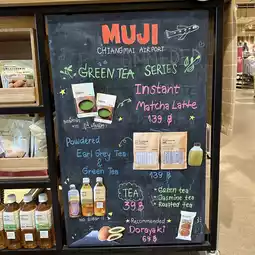 MUJI
CHIANGMAI AIRPORT
GREEN TEA SERIES
Instant
Matcha Latte
139 ฿
Powdered
Earl Grey Tea
&
Green Tea
139 ฿
TEA
39฿
Green tea
Jasmine tea
Roasted tea
Recommended
Dorayaki
69 ฿